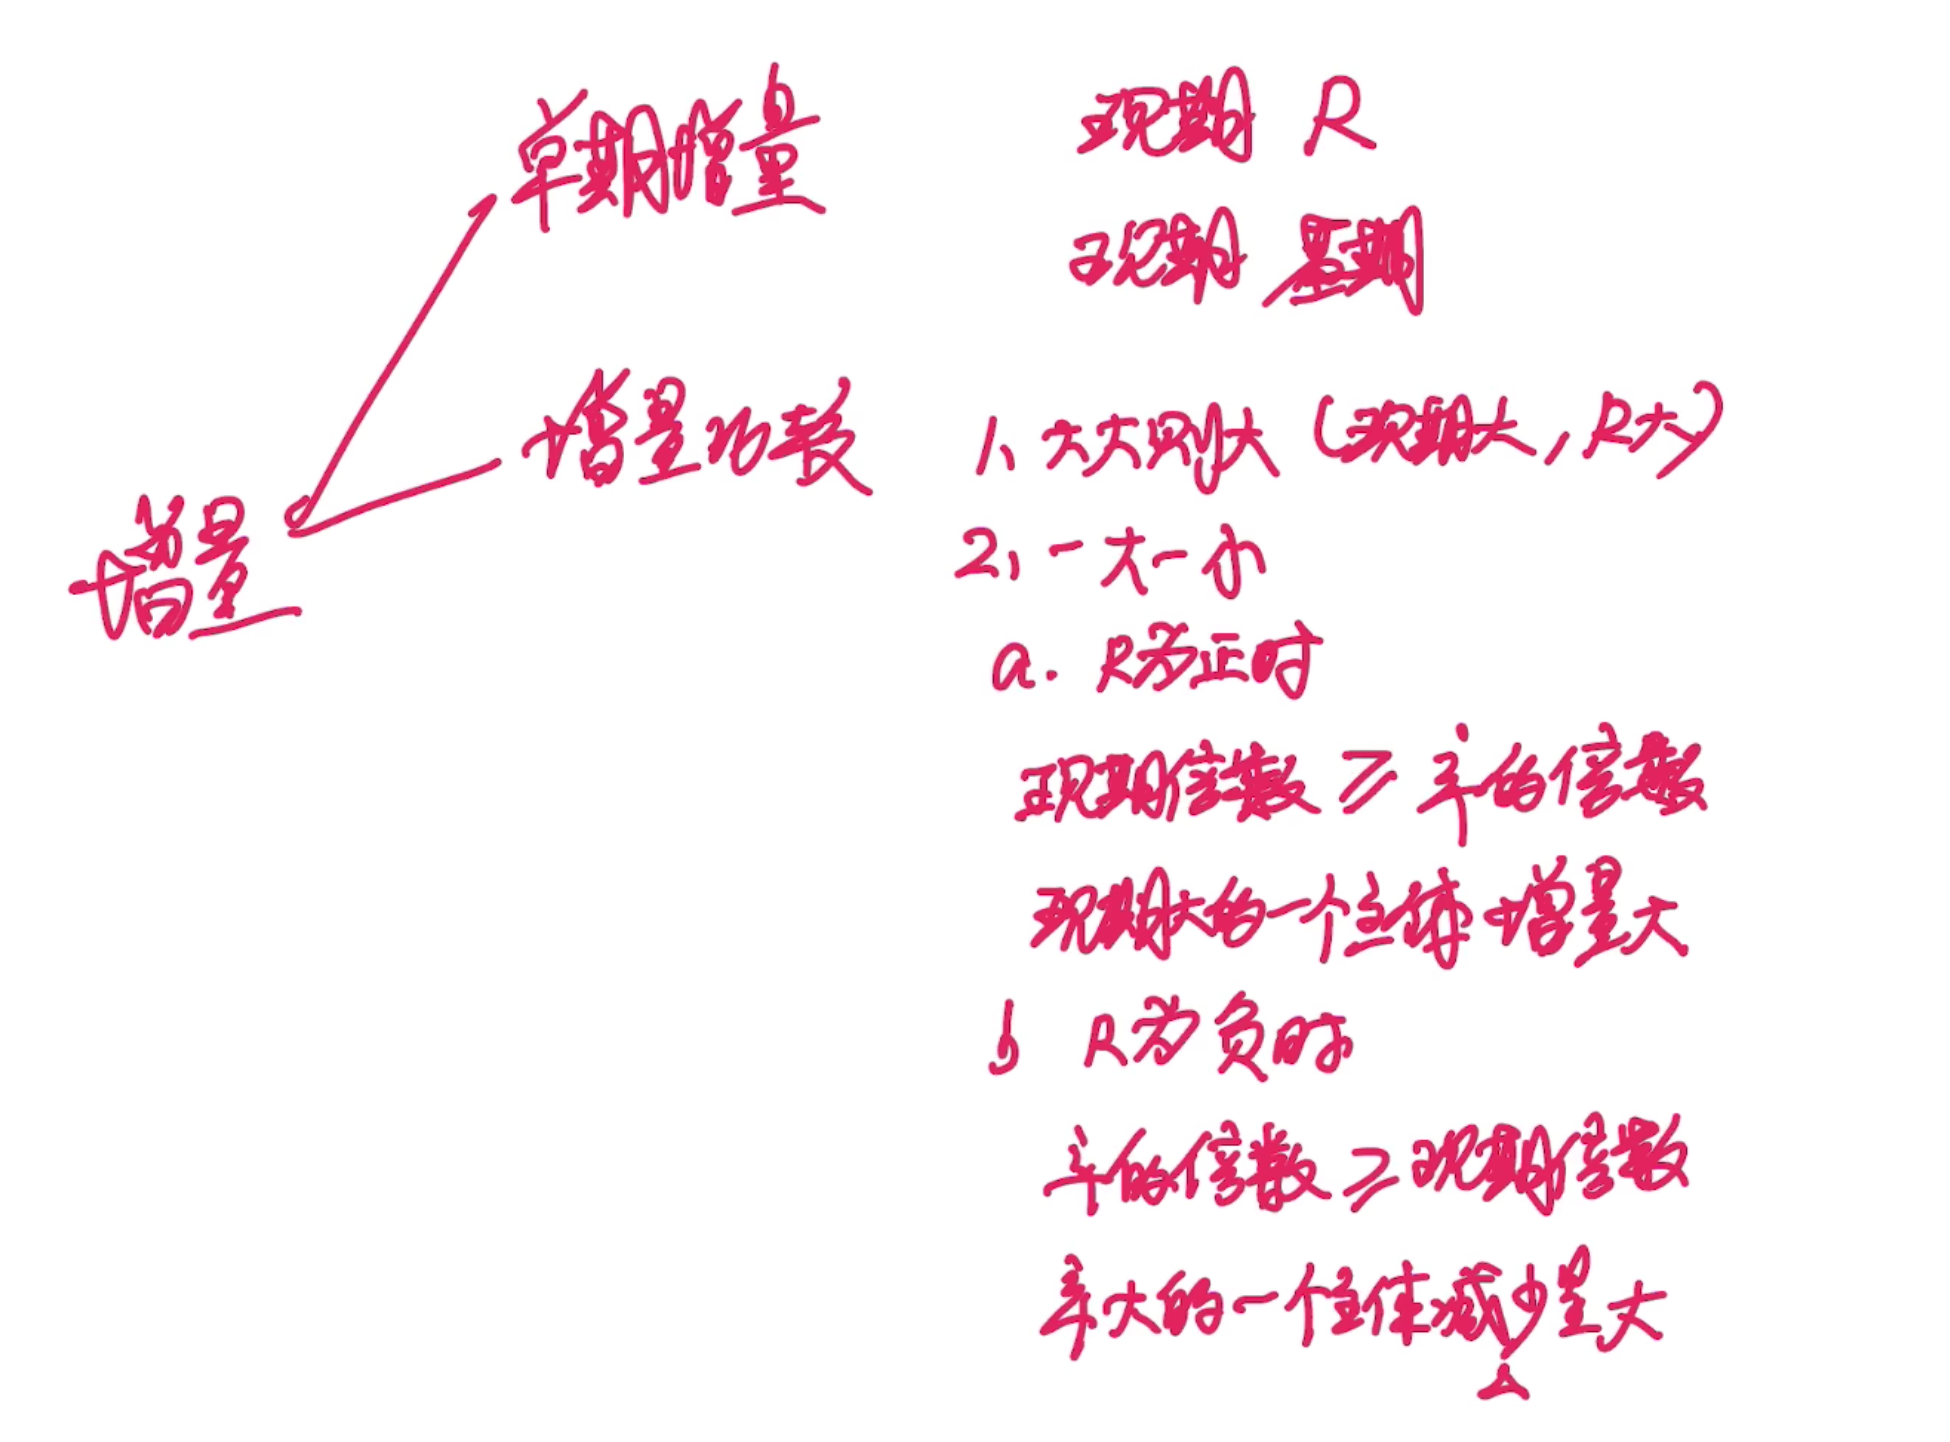 单期增量
现期 R
现期 基期
增量比较
1、大大则大（现期大，R大）
增量
2、一大一小
a. R为正时
现期倍数 ≥ 率的倍数
现期大的一个主体增量大
b R为负时
率的倍数 ≥ 现期倍数
率大的一个主体减少量大